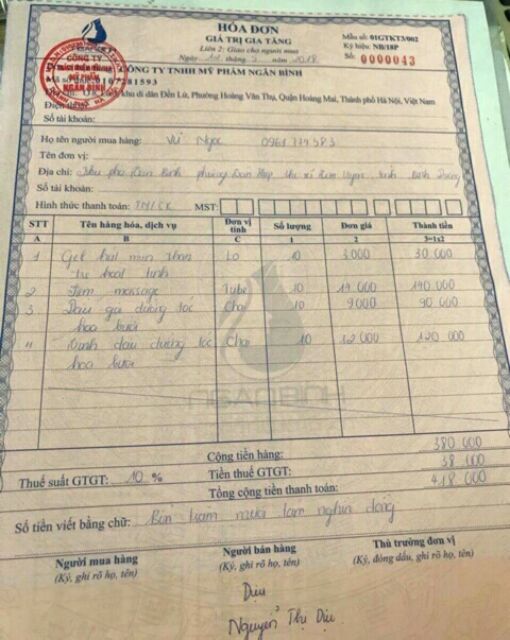 HÓA ĐƠN
GIÁ TRỊ GIA TĂNG
Liên 2: Giao cho người mua
Mẫu số: 01GTKT3/002
Ký hiệu: NB/18P
Số: 0000043
CÔNG TY TNHH MỸ PHẨM NGÂN BÌNH
Mã số thuế: 0107281593
khu di dân Đền Lừ, Phường Hoàng Văn Thụ, Quận Hoàng Mai, Thành phố Hà Nội, Việt Nam
Điện thoại:
Số tài khoản:
Họ tên người mua hàng: Vũ Ngọc
Tên đơn vị:
Địa chỉ:
Số tài khoản:
Hình thức thanh toán: TM/CK MST:
STT Tên hàng hóa, dịch vụ Đơn vị tính Số lượng Đơn giá Thành tiền
A B C 1 2 3=1x2
1 Gel Lọ 10 3.000 30 000
hoạt tính
2 massage Tube 10 14 000 140 000
3 Dầu gội dưỡng tóc Chai 10 9000 90 000
hoa bưởi
4 Tinh dầu dưỡng tóc Chai 10 12 000 120 000
hoa bưởi
NGANBINH
Cộng tiền hàng: 380 000
Thuế suất GTGT: 10 % Tiền thuế GTGT: 38 000
Tổng cộng tiền thanh toán: 418 000
Số tiền viết bằng chữ: Bốn trăm mười tám nghìn đồng
Người mua hàng Người bán hàng Thủ trưởng đơn vị
(Ký, ghi rõ họ, tên) (Ký, ghi rõ họ, tên) (Ký, đóng dấu, ghi rõ họ, tên)
Dịu
Nguyễn Thị Dịu